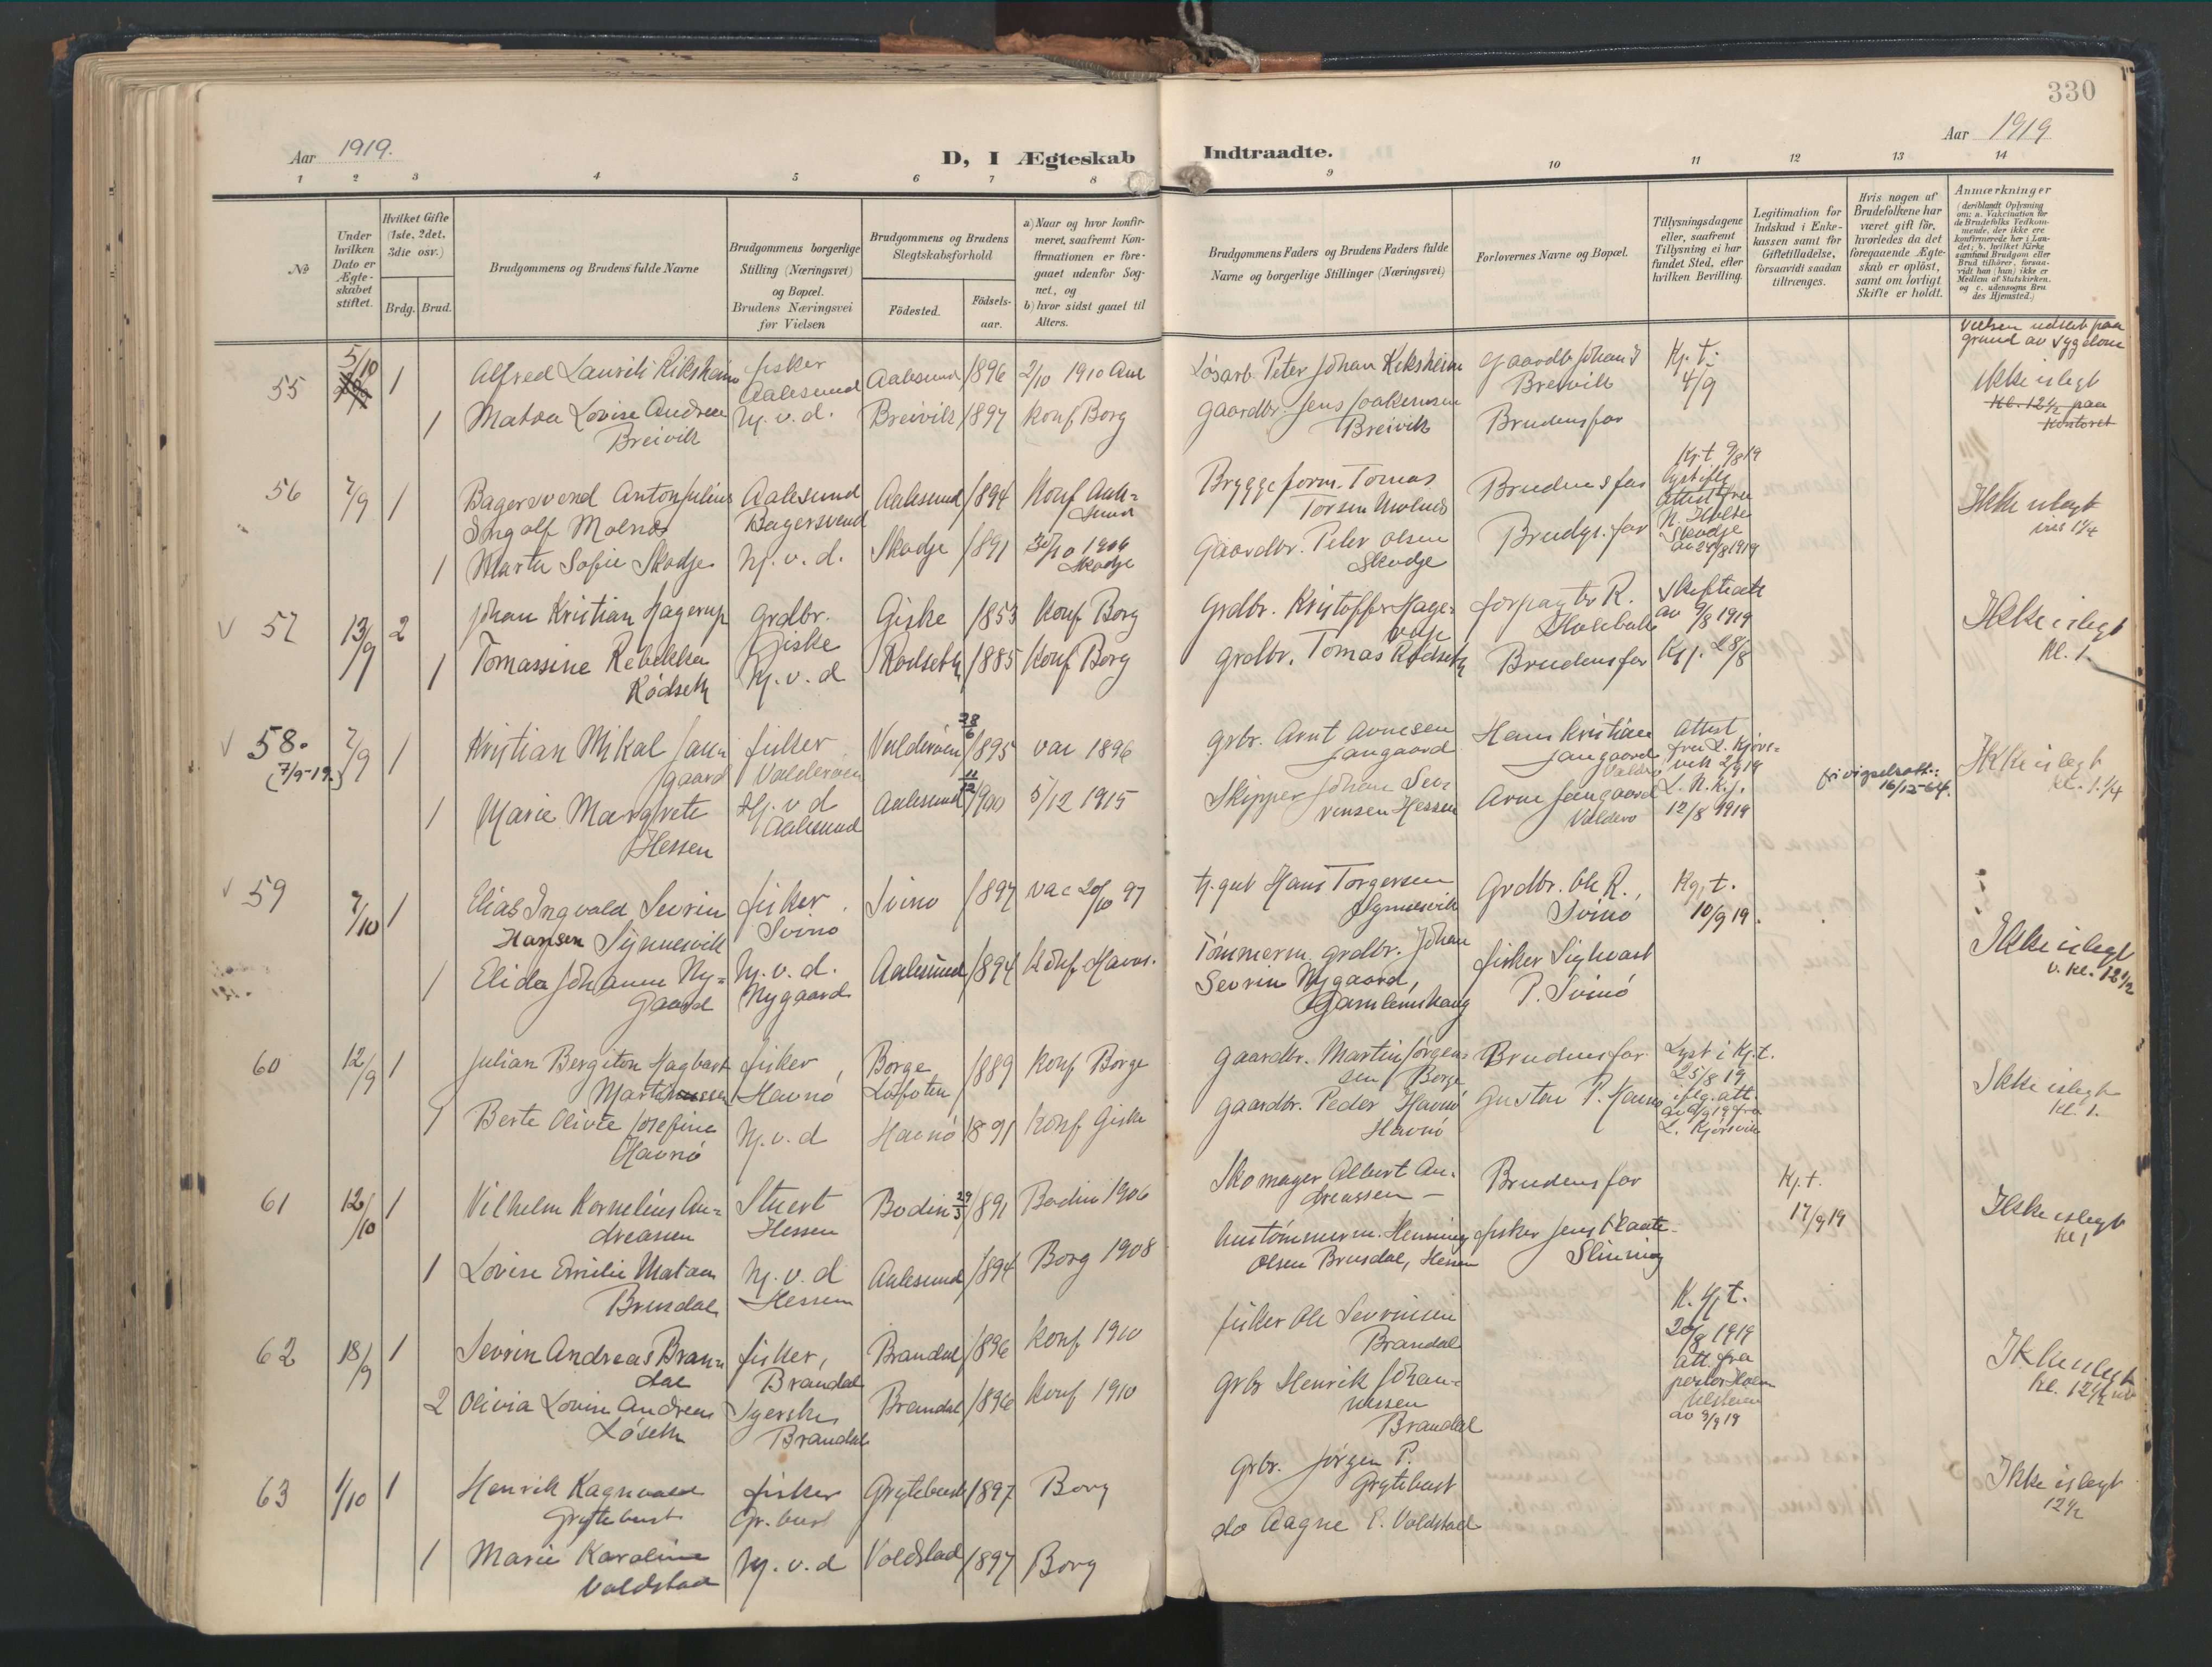 330
Aar 1919.
D, I Ægteskab
Indtraadte.
Aar 1919
1 2 3 4 5 6 7 8
9 10 11 12 13 14
No
Under hvilken Dato er Ægteskabet stiftet.
Hvilket Gifte (1ste, 2det, 3die osv.)
Brdg. Brud.
Brudgommens og Brudens fulde Navne
Brudgommens borgerlige Stilling (Næringsvei) og Bopæl.
Brudens Næringsvei før Vielsen
Brudgommens og Brudens Slegtskabsforhold
Födested.
Födsels-aar.
a) Naar og hvor konfirmeret, saafremt Konfirmationen er foregaaet udenfor Sognet, og
b) hvor sidst gaaet til Alters.
Brudgommens Faders og Brudens Faders fulde Navne og borgerlige Stillinger (Næringsvei)
Forlovernes Navne og Bopæl.
Tillysningsdagene eller, saafremt Tillysning ei har fundet Sted, efter hvilken Bevilling.
Legitimation for Indskud i Enkekassen samt for Giftetilladelse, forsaavidt saadan tiltrænges.
Hvis nogen af Brudefolkene har været gift før, hvorledes da det foregaaende Ægteskab er oplöst, samt om lovligt Skifte er holdt.
Anmærkninger
(deriblandt Oplysning om: a. Vakcination for de Brudefolks Vedkommende, der ikke ere konfirmerede her i Landet; b. hvilket Kirkesamfund Brudgom eller Brud tilhörer, forsaavidt han (hun) ikke er Medlem af Statskirken, og c. udensogns Brudes Hjemsted.)
55 5/10 1 Alfred Laurits Kiksheim fisker Aalesund Aalesund 1896 2/10 1910 Aal
Løsarb. Peter Johan Kiksheim Gaardb. Johan J Breivik Kj. t. 4/9
Vielsen udsat paa grund av sygdom
Ikke i slegt
Kl. 12½ paa Kontoret
1 Matea Lovise Andrea Breivik Hj. v. d. Breivik 1897 Konf Borg
Gaardbr. Jens Joakimsen Breivik Brudens far
56 7/9 1 Bagersvend Anton Julius Ingolf Molnes Aalesund Bagersvend Aalesund 1894 Konf Aalesund
Bryggeform. Tomas Torsen Molnes Brudens far Kj. t 9/8 19
Ikke i slegt
1 Marta Sofie Skodje Hj. v. d. Skodje 1891 30/10 1906 Skodje
Gaardbr. Peter Olsen Skodje Brudg. far Skodje av 29/8 1919
57 13/9 2 Johan Kristian Hagerup Grdbr. Giske Giske 1853 Konf Borg
Grdbr. Kristoffer Skifteatt av 9/8 1919
Ikke i slegt Kl. 1.
1 Tomassine Rebekka Rødseth Hj. v. d Rødseth 1885 Konf Borg
Grdbr. Tomas Rødseth Brudens far Kj. 28/8
58. (7/9-19.) 7/9 1 Kristian Mikal Jangaard fisker Valderøen Valderøen 28/6 1895 vac 1896
Grbr. Arnt Arnesen Jangaard Hans Kristian Jangaard Valderø Attest fra L. Kjørsvik 2/9 19
fri vigselsatt.: 16/12-64.
Ikke i slegt kl. 1.1/4
1 Marie Margrete Hessen Hj. v d Aalesund Aalesund 11/12 1900 5/12 1915
Skipper Johan Sevrinsen Hessen Arne Jangaard Valderø L. N. Kj. 12/8 1919
59 7/10 1 Elias Ingvald Sevrin Hansen Synnesvik fisker Svinø Svinø 1897 vac 20/10 97
Hans Torgersen Synnesvik Grdbr. Ole R. Svinø Kj. t. 10/9 19.
Ikke i slegt v. kl. 12½
1 Elida Johanne Nygaard Hj. v. d. Nygaard Aalesund 1894 Konf. Havns.
Tømmerm. grdbr. Johan Sevrin Nygaard, Gamlemshaug fisker Sighvart P. Svinø
60 12/9 1 Julian Bergiton Hagbart Martinussen fisker, Havnø Borge Lofoten 1889 Konf Borge
Gaardbr. Martin Jørgensen Borge Brudens far Lyst i Kj. t. 25/8 19 iflg. att. fra L. Kjørsvik
Ikke i slegt Kl. 1.
1 Berte Olivie Josefine Havnø Hj. v. d Havnø 1891 Konf Giske
Gaardbr. Peder Havnø Havnø Gustav P. Havnø
61 12/10 1 Vilhelm Kornelius Andreassen Stuert Hessen Bodin 29/3 1891 Bodin 1906
Skomager Albert Andreassen – Brudens far Kj. t. 17/9 19
Ikke i slegt Kl 1
1 Lovise Emilie Matea Brusdal Hj. v. d Hessen Aalesund 1894 Borg 1908
Hustømmerm. Henning Olsen Brusdal, Hessen fisker Jens Slining
62 18/9 1 Sevrin Andreas Brandal fisker, Brandal Brandal 1896 Konf 1910
fisker Ole Sevrinsen Brandal K. Hj t. 20/8 1919 att. fra pastor Holm av 9/9 19
Ikke i slegt Kl. 12½
2 Olivia Lovise Andrea Løseth Syerske Brandal Brandal 1896 Konf 1910
Grbr Henrik Johannessen Brandal
63 1/10 1 Henrik Ragnvald Grytebust fisker Gr. bust Grytebust 1897 Borg
Grbr. Jørgen P. Grytebust
Ikke i slegt 12½
1 Marie Karoline Voldstad Hj. v. d Voldstad 1897 Borg
do Aagne E. Voldstad